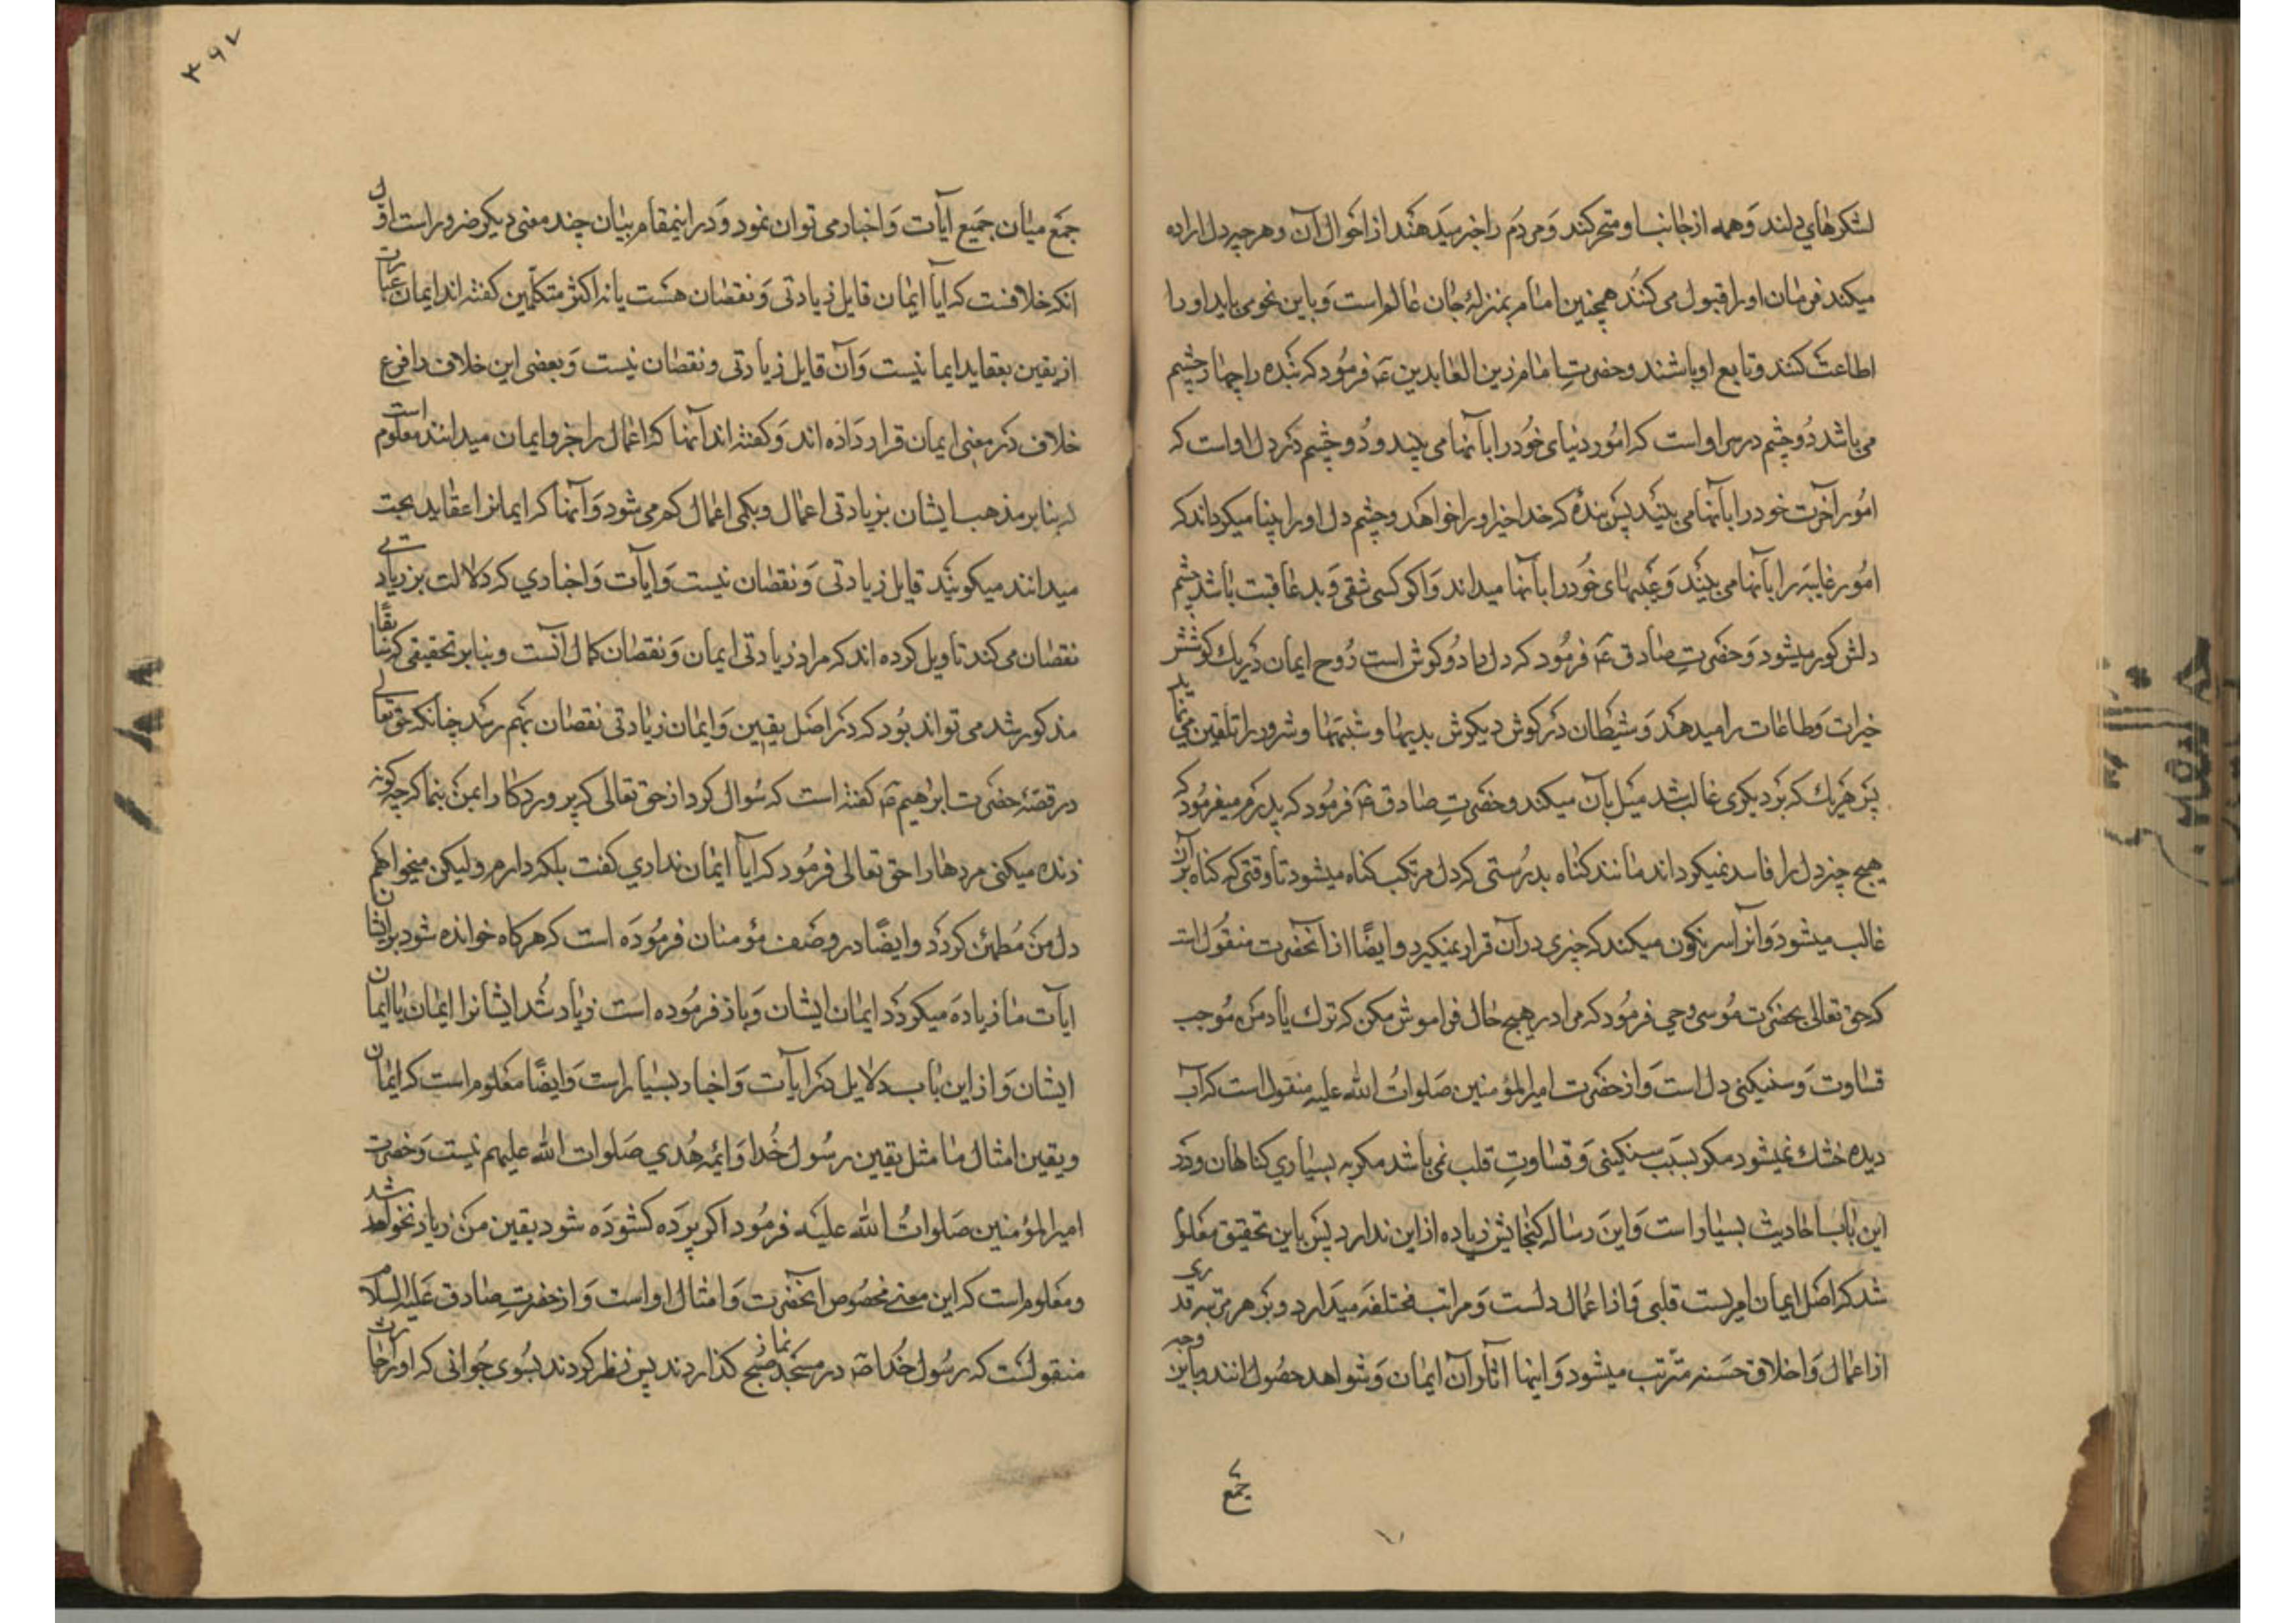 لشکرهای دلند و همه از جانب او متحرکند و مردم را خبر میدهند از احوال آن و هر چه دل اراده
میکند فرمان او را قبول می کنند همچنین امام بمنزلهٔ جان عالم است و باین نحو می باید او را
اطاعت کنند و تابع او باشند و حضرت امام زین العابدین ع فرمود که بنده را چهار چشم
می باشد دو چشم در سر او است که امور دنیای خود را بآنها می بیند و دو چشم در دل او است که
امور آخرت خود را بآنها می بیند پس بندهٔ که خدا خیر او را خواهد دو چشم دل او را بینا میکرداند که
امور غایبه را بآنها می بیند و عیبهای خود را بآنها میداند و اکر کسی شقی و بد عاقبت باشد چشم
دلش کور میشود و حضرت صادق ع فرمود که دل را دو کوش است روح ایمان در یک کوشش
خیرات و طاعات را میدهد و شیطان در کوش دیکرش بدیها و شبهتها و شرور را تلقین می نماید
پس هر یک که بر دیکری غالب شد میل بآن میکند و حضرت صادق ع فرمود که پدرم میفرمود که
هیچ چیز دل را فاسد نمیکرداند مانند کناه بدرستی که دل مرتکب کناه میشود تا وقتی که کناه بر آن
غالب میشود و آنرا سرنکون میکند که چیزی در آن قرار نمیکیرد و ایضًا از آنحضرت منقول است
که حق تعالی بحضرت موسی وحی فرمود که مرا در هیچ حال فراموش مکن که ترک یاد من موجب
قساوت و سنکینی دل است و از حضرت امیر المؤمنین صلوات الله علیه منقول است که آب
دیده خشک نمیشود مکر بسبب سنکینی و قساوت قلب نمی باشد مکر به بسیاری کناهان و در
این باب احادیث بسیار است و این رساله کنجایش زیاده از این ندارد پس باین تحقیق معلوم
شد که اصل ایمان امریست قلبی و از اعمال دلست و مراتب مختلفه میدارد و بر هر مرتبه قدری
از اعمال و اخلاق حسنه مترتب میشود و اینها آثار آن ایمان و شواهد حصول آنند و باین وجه
جمع
۳۹۷
جمع میان جمیع آیات و اخبار می توان نمود و در اینمقام بیان چند معنی دیکر ضرور است اول
آنکه خلافست که آیا ایمان قابل زیادتی و نقصان هست یا نه اکثر متکلمین کفته اند ایمان عبارت
از یقین بعقاید ایما نیست و آن قابل زیادتی و نقصان نیست و بعضی این خلاف را فرع
خلاف در معنی ایمان قرار داده اند و کفته اند آنها که اعمال را جزو ایمان میدانند معلوم است
که بنابر مذهب ایشان بزیادتی اعمال و بکمی اعمال کم می شود و آنها که ایمان را عقاید بحت
میدانند میکویند قابل زیادتی و نقصان نیست و آیات و اخباری که دلالت بر زیادتی
نقصان می کند تاویل کرده اند که مراد زیادتی ایمان و نقصان کمال آنست و بنابر تحقیقی که سابقًا
مذکور شد می تواند بود که در اصل یقین و ایمان زیادتی نقصان بهم رسد چنانکه حق تعالی
در قصهٔ حضرت ابراهیم ع کفته است که سوال کرد از حق تعالی که پروردکارا بمن بنما که چه کونه
زنده میکنی مردها را حق تعالی فرمود که آیا ایمان نداری کفت بلکه دارم ولیکن میخواهم
دل من مطمئن کردد و ایضًا در وصف مؤمنان فرموده است که هر کاه خوانده شود بر ایشان
ایات ما زیاده میکردد ایمان ایشان و باز فرموده است زیاد شد ایشانرا ایمان با ایمان
ایشان و از این باب دلایل در آیات و اخبار بسیار است و ایضًا معلوم است که ایمان
و یقین امثال ما مثل یقین رسول خدا و ائمه هدی صلوات الله علیهم نیست و حضرت
امیر المؤمنین صلوات الله علیه فرمود اکر پرده کشوده شود یقین من زیاد نخواهد شد
و معلوم است که این معنی مخصوص آنحضرت و امثال او است و از حضرت صادق علیه السلام
منقولست که رسول خدا ص در مسجد نماز صبح کذاردند پس نظر کردند بسوی جوانی که او را حارث